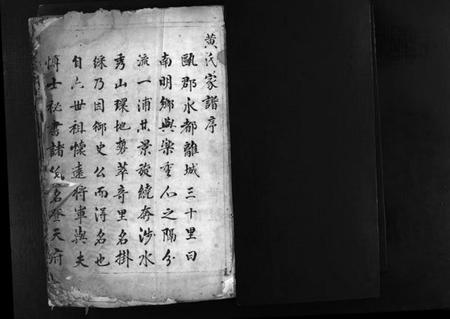 黄氏家譜序
甌郡永都離城三十里曰
南明鄉與樂重心之隔分
流一浦其景旋繞奔涉水
秀山環地勢萃奇里名掛
綵乃因御史公而得名也
自六世祖懷遠行軍與夫
博士秘書諸公名登天府